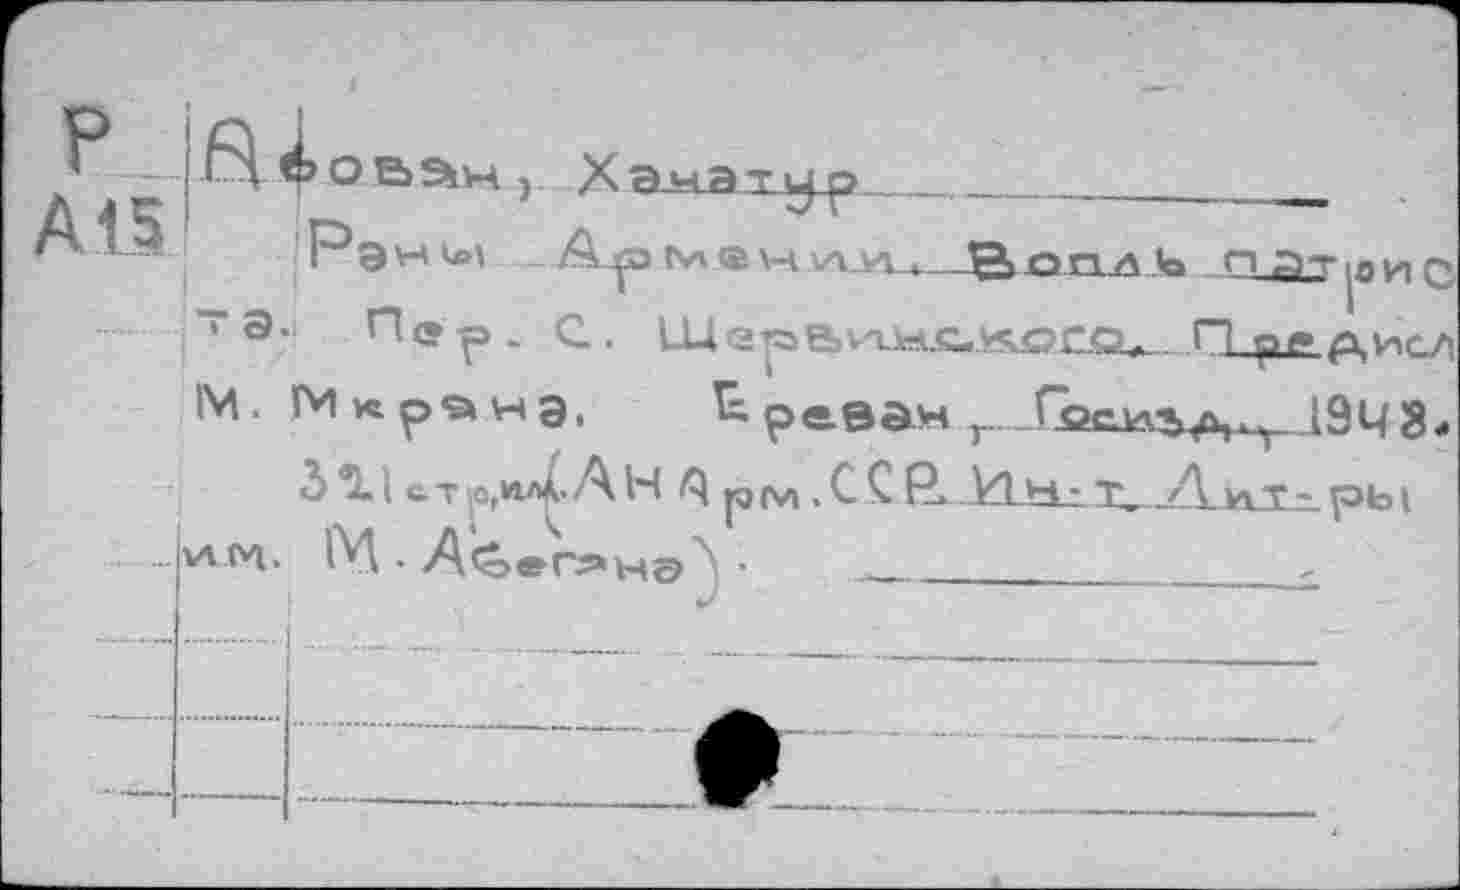 Р Абовян, Хачатур
А15 Раны Армении. Вопль патрио
та. Пер. С. Шервинского. Предисл
М. Мкряна. Ереван, Госизд., 1948.
321 стр., ил. (АН Арм. ССР. Ин-т. Лит-ры
им. М. Абегяна).